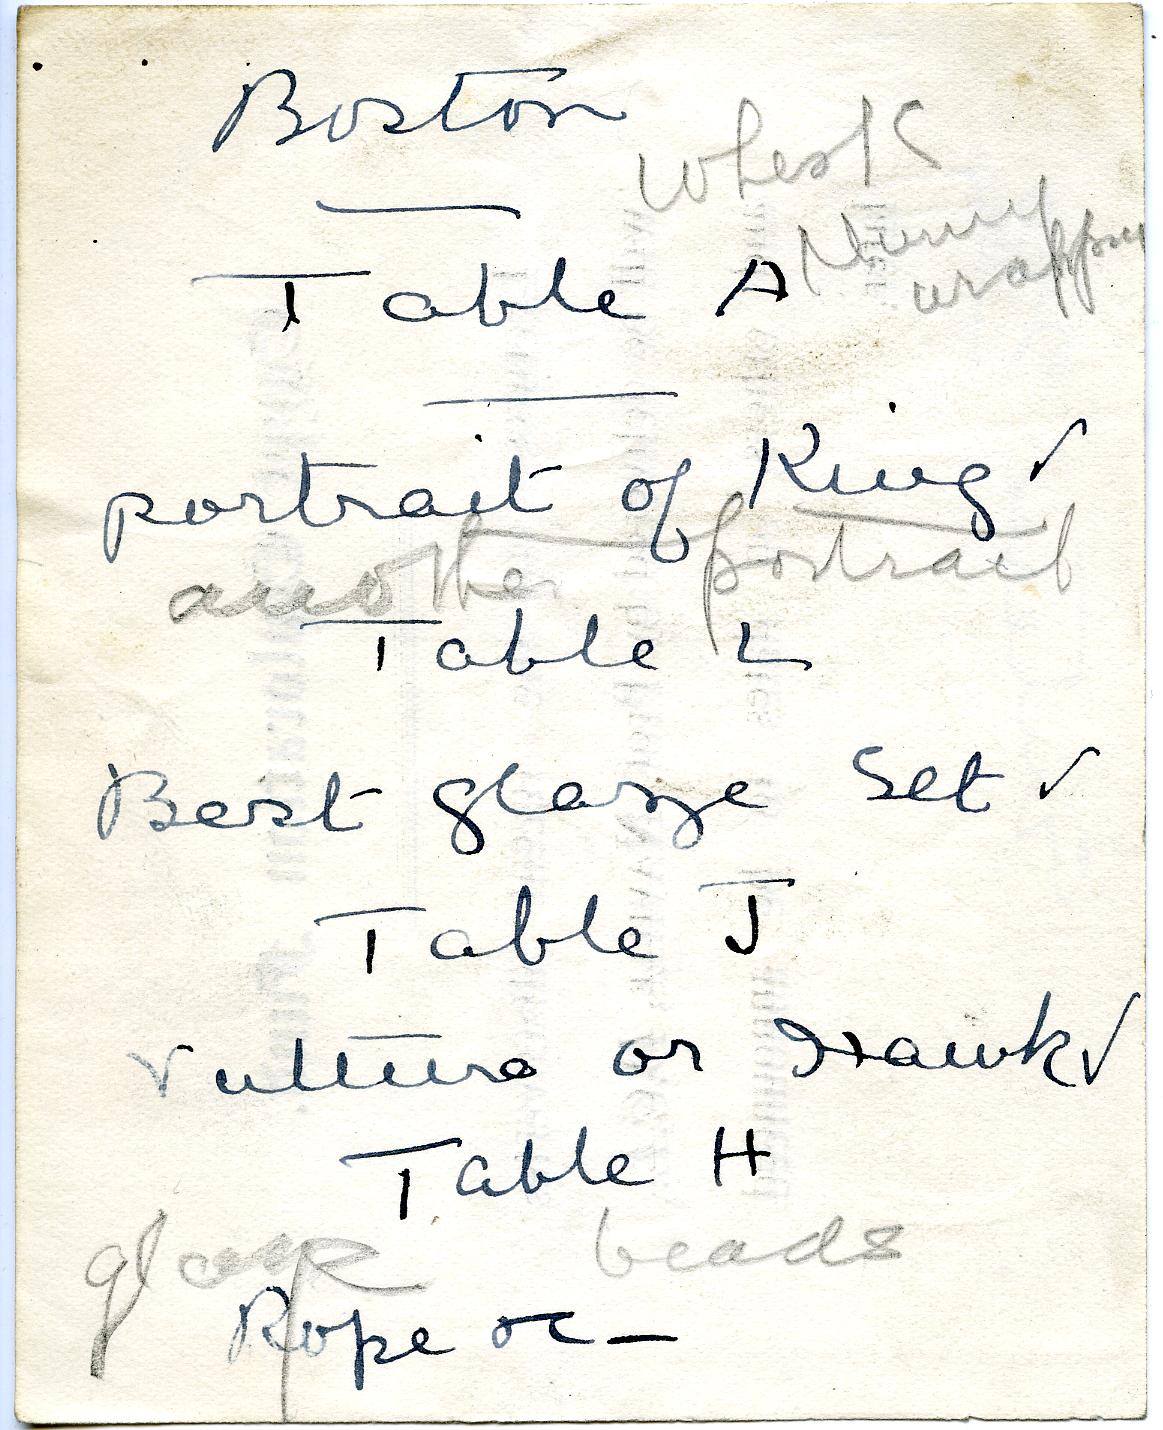 Boston
Table A
wrappin
portrait of King ✓
another portrait
Table L
Best glaze Set ✓
Table J
Vulture or Hawk ✓
Table H
glass beads
Rope oc —